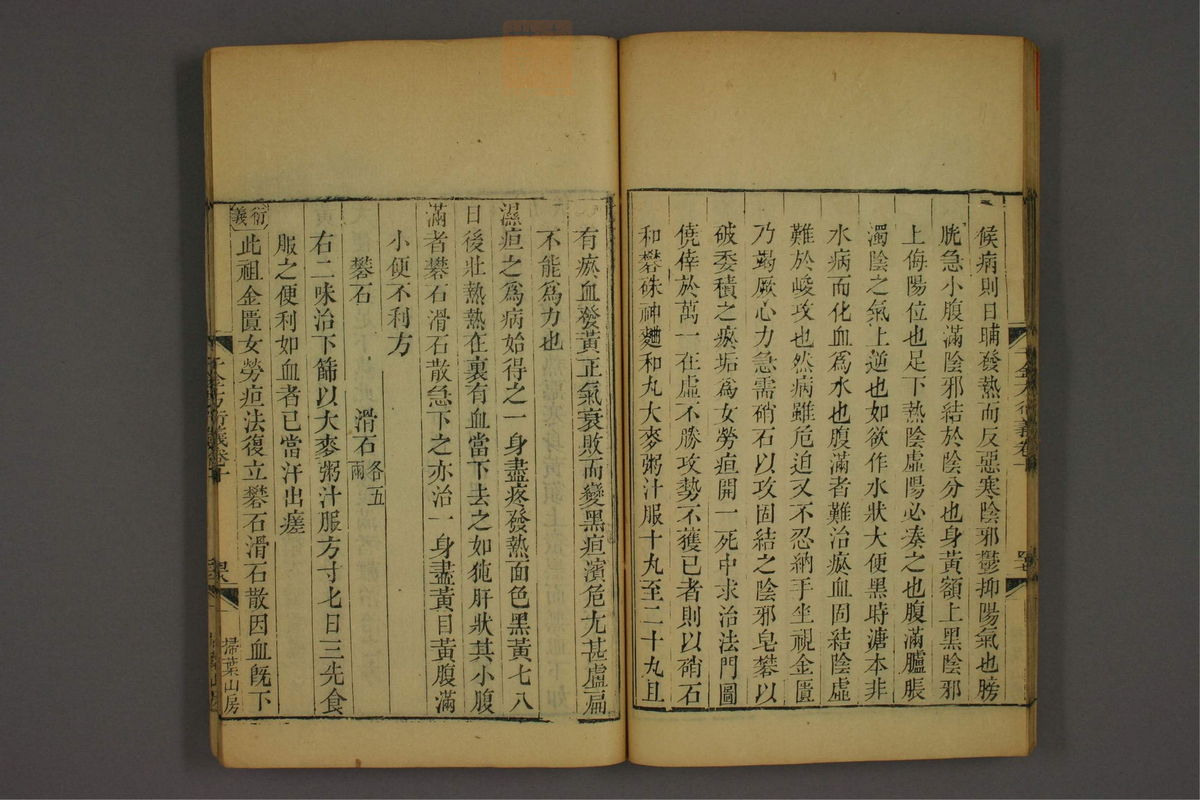 候病則日晡發熱而反惡寒陰邪鬱抑陽氣也膀
胱急小腹滿陰邪結於陰分也身黃額上黑陰邪
上侮陽位也足下熱陰虛陽必湊之也腹滿臚脹
濁陰之氣上逆也如欲作水狀大便黑時溏本非
水病而化血爲水也腹滿者難治瘀血固結陰虛
難於峻攻也然病雖危迫又不忍納手坐視金匱
乃竭厥心力急需硝石以攻固結之陰邪皂礬以
破委積之瘀垢爲女勞疸開一死中求治法門圖
僥倖於萬一在虛不勝攻勢不獲已者則以硝石
和礬硃神麯和丸大麥粥汁服十丸至二十丸且
有瘀血發黃正氣衰敗而變黑疸濱危尤甚盧扁
不能爲力也
濕疸之爲病始得之一身盡疼發熱面色黑黃七八
日後壯熱熱在裏有血當下去之如㹠肝狀其小腹
滿者礬石滑石散急下之亦治一身盡黃目黃腹滿
小便不利方
礬石 滑石各五兩
右二味治下篩以大麥粥汁服方寸匕日三先食
服之便利如血者已當汗出瘥
衍義
此祖金匱女勞疸法復立礬石滑石散因血旣下
千金方衍義卷十
掃葉山房